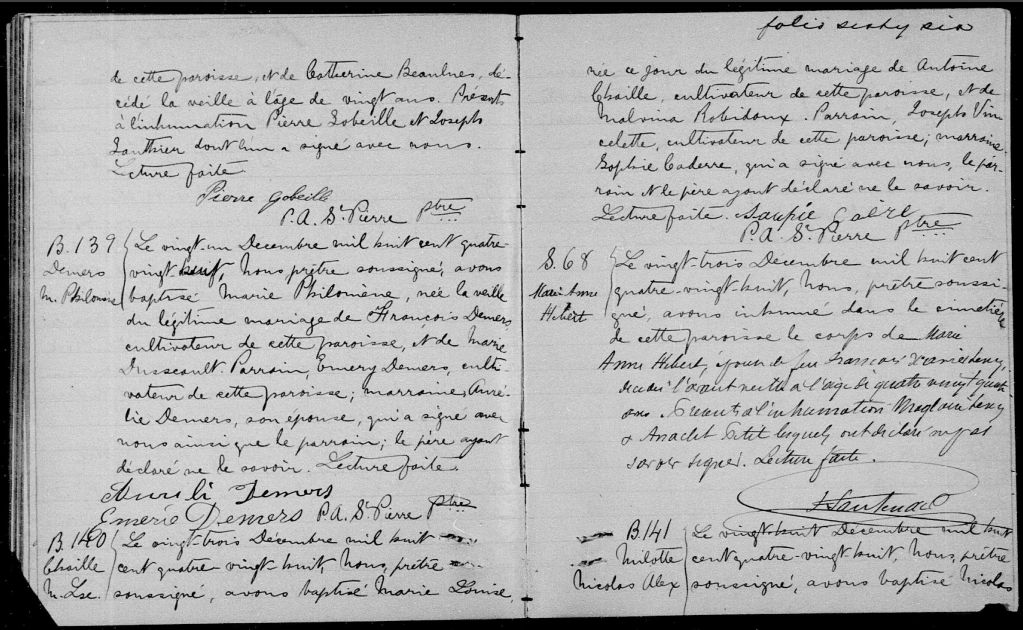 de cette paroisse, et de Catherine Beaulnes, dé-
cédé la veille à l'âge de vingt ans. Présents
à l'inhumation Pierre Gobeille et Joseph
Gauthier dont l'un a signé avec nous.
Lecture faite.
Pierre Gobeille
P. A. St Pierre Ptre
B. 139
Demers
M. Philomène
Le vingt-un Décembre mil huit cent quatre-
vingt-huit, Nous prêtre soussigné, avons
baptisé Marie Philomène, née la veille
du légitime mariage de François Demers,
cultivateur de cette paroisse, et de Marie
Dusseault. Parrain, Emery Demers, culti-
vateur de cette paroisse; marraine, Auré-
lie Demers, son épouse, qui a signé avec
nous ainsi que le parrain; le père ayant
déclaré ne le savoir. Lecture faite.
Aureli Demers
Emerie Demers P. A. St Pierre Ptre
B. 140
Chaille
M. Lse.
Le vingt-trois Décembre mil huit
cent quatre-vingt-huit Nous, prêtre
soussigné, avons baptisé Marie Louise,
folio sixty six
née ce jour du légitime mariage de Antoine
Chaille, cultivateur de cette paroisse, et de
Malvina Robidoux. Parrain, Joseph Vin
celette, cultivateur de cette paroisse; marraine,
Sophie Caderre, qui a signé avec nous, le par-
rain et le père ayant déclaré ne le savoir.
Lecture faite.
P. A. St Pierre Ptre
S. 68
Marie Anne
Hebert
Le vingt-trois Décembre mil huit cent
quatre-vingt huit, Nous, prêtre soussi-
gné, avons inhumé dans le cimetière
de cette paroisse le corps de Marie
Anne Hebert, épouse de feu Francois Xavier
décédée l'avant veille a l'age de quatre vingt quatre
ans. Présents a l'inhumation
& Anaclet Petit lesquels ont declaré ne pas
savoir signer. Lecture faite.
B. 141
Milotte
Nicolas Alex
Le vingt-huit Décembre mil huit
cent quatre-vingt huit Nous, prêtre
soussigné, avons baptisé Nicolas